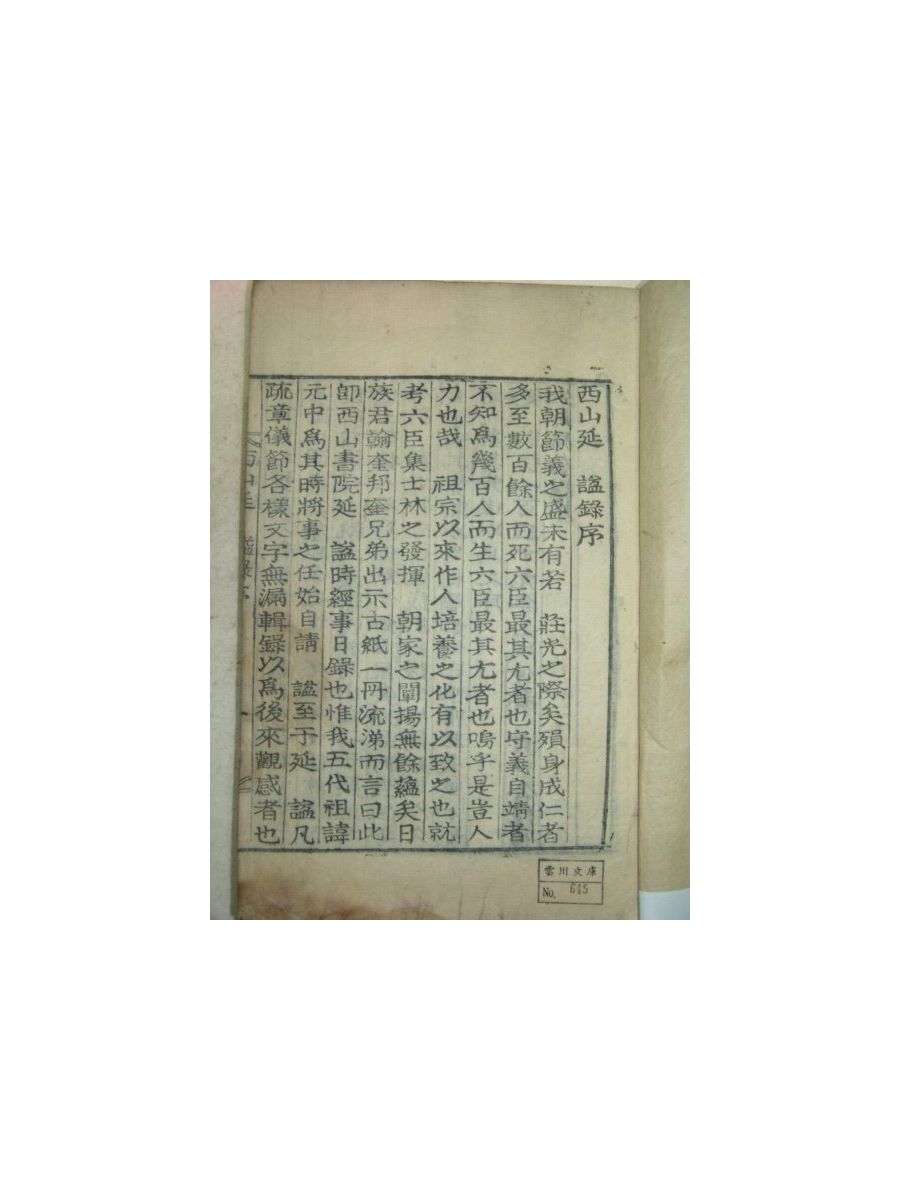 西山延　諡錄序
我朝節義之盛未有若　莊光之際矣殞身成仁者
多至數百餘人而死六臣最其尤者也守義自靖者
不知爲幾百人而生六臣最其尤者也嗚乎是豈人
力也哉　祖宗以來作人培養之化有以致之也就
考六臣集士林之發揮　朝家之闡揚無餘蘊矣日
族君翰奎邦奎兄弟出示古紙一冊流涕而言曰此
卽西山書院延　諡時經事日錄也惟我五代祖諱
元中爲其時將事之任始自請　諡至于延　諡凡
疏章儀節各樣文字無漏輯錄以爲後來觀感者也
西山延　諡錄序
一
雲川文庫
No. 645